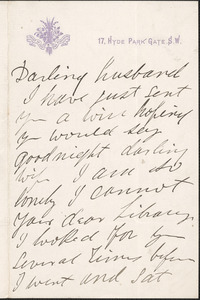 17, HYDE PARK GATE. S.W.
Darling husband
I have just sent
you a wire hoping
you would say
goodnight darling
wife I am so
lonely I cannot
your dear Library.
I looked for you
Several Times before
I went and sat